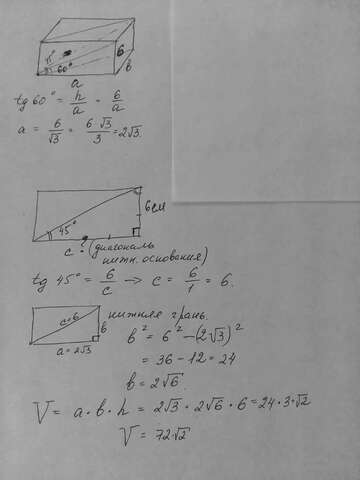 60°
6
в
a
tg 60° = h/a = 6/a
a = 6/√3 = 6·√3/3 = 2√3.
45°
6 см
c - ? (диагональ
нижн. основания)
tg 45° = 6/c → c = 6/1 = 6.
c=6
в
a = 2√3
нижняя грань.
в² = 6² - (2√3)²
= 36 - 12 = 24
в = 2√6.
V = a · в · h = 2√3 · 2√6 · 6 = 24 · 3 · √2
V = 72√2